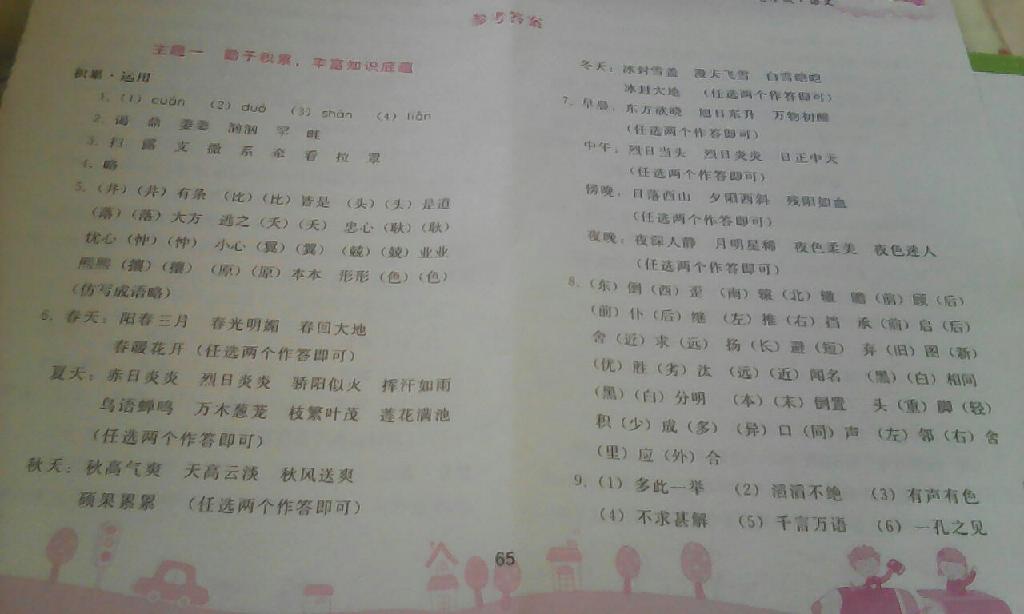 参考答案
主题一 勤于积累，丰富知识底蕴
积累·运用
1. (1) cuán (2) duó (3) shàn (4) liǎn
2. 谒 鼎 萋萋
3. 扫 露 支 微 系 牵 看 拉 罩
4. 略
5. （井）（井）有条 （比）（比）皆是 （头）（头）是道
（落）（落）大方 逃之（夭）（夭） 忠心（耿）（耿）
忧心（忡）（忡） 小心（翼）（翼） （兢）（兢）业业
熙熙（攘）（攘） （原）（原）本本 形形（色）（色）
（仿写成语略）
6. 春天：阳春三月 春光明媚 春回大地
春暖花开（任选两个作答即可）
夏天：赤日炎炎 烈日炎炎 骄阳似火 挥汗如雨
鸟语蝉鸣 万木葱茏 枝繁叶茂 莲花满池
（任选两个作答即可）
秋天：秋高气爽 天高云淡 秋风送爽
硕果累累 （任选两个作答即可）
65
冬天：冰封雪盖 漫天飞雪 白雪皑皑
冰封大地 （任选两个作答即可）
7. 早晨：东方欲晓 旭日东升 万物初醒
（任选两个作答即可）
中午：烈日当头 烈日炎炎 日正中天
（任选两个作答即可）
傍晚：日落西山 夕阳西斜 残阳如血
（任选两个作答即可）
夜晚：夜深人静 月明星稀 夜色柔美 夜色迷人
（任选两个作答即可）
8. （东）倒（西）歪 （南）辕（北）辙 瞻（前）顾（后）
（前）仆（后）继 （左）推（右）挡 承（前）启（后）
舍（近）求（远） 扬（长）避（短） 弃（旧）图（新）
（优）胜（劣）汰 （远）（近）闻名 （黑）（白）相间
（黑）（白）分明 （本）（末）倒置 头（重）脚（轻）
积（少）成（多） （异）口（同）声 （左）邻（右）舍
（里）应（外）合
9. (1) 多此一举 (2) 滔滔不绝 (3) 有声有色
(4) 不求甚解 (5) 千言万语 (6) 一孔之见